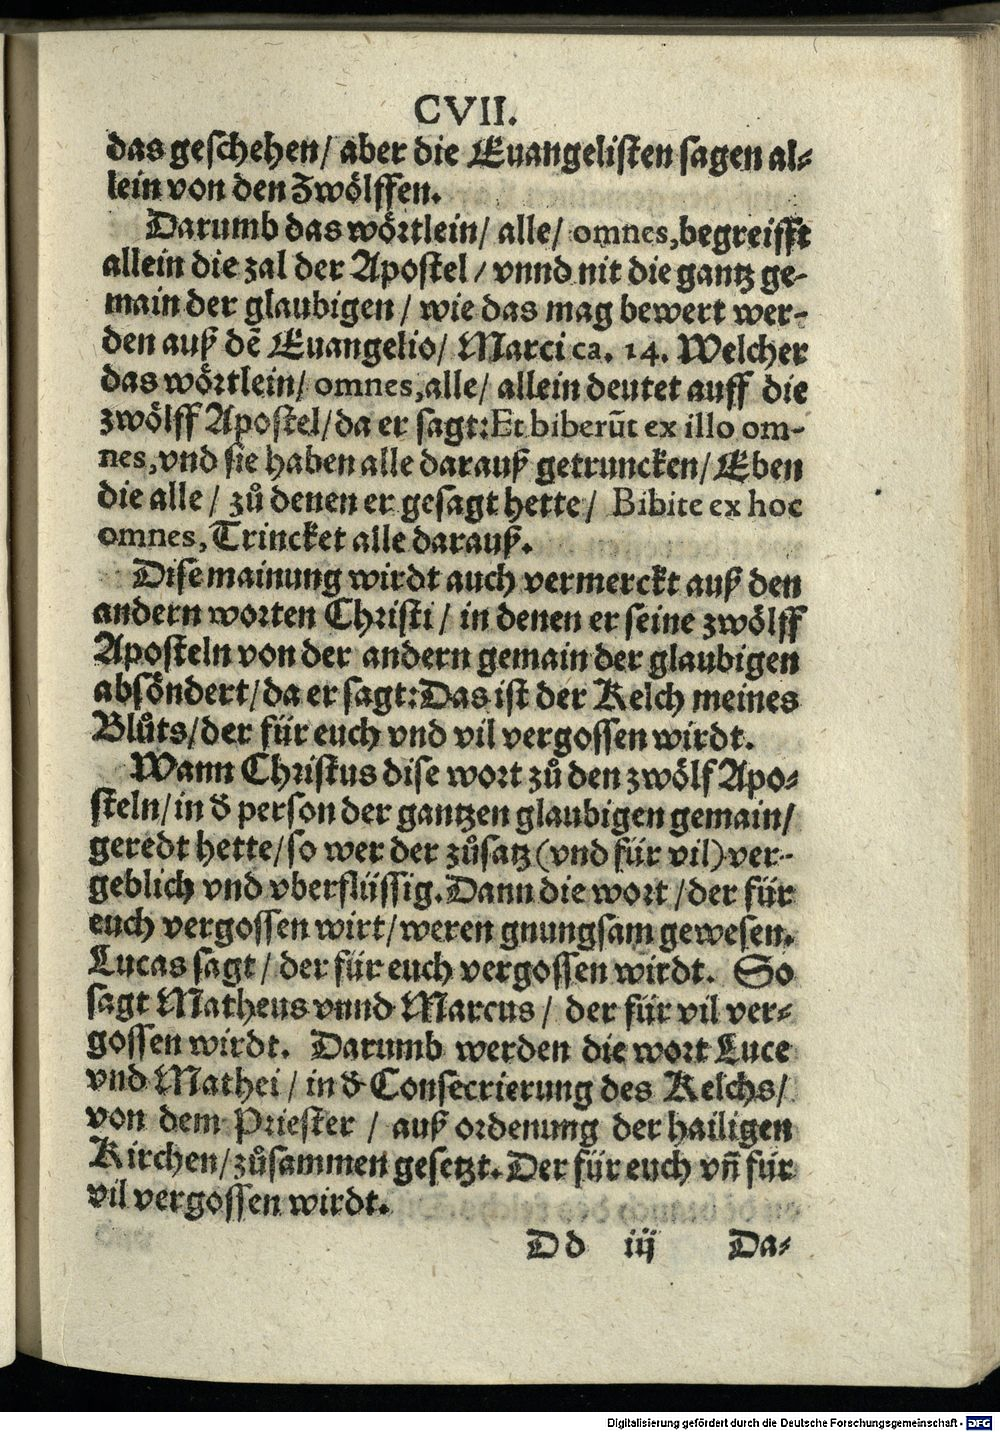 CVII.
das geschehen/ aber die Euangelisten sagen al⸗
lein von den Zwölffen.
Darumb das wörtlein/ alle/ omnes, begreifft
allein die zal der Apostel/ vnnd nit die gantz ge⸗
main der glaubigen/ wie das mag bewert wer⸗
den auß dē Euangelio/ Marci ca. 14. Welcher
das wörtlein/ omnes, alle/ allein deutet auff die
zwölff Apostel/ da er sagt: Et biberūt ex illo om-
nes, vnd sie haben alle darauß getruncken/ Eben
die alle/ zů denen er gesagt hette/ Bibite ex hoc
omnes, Trincket alle darauß.
Dise mainung wirdt auch vermerckt auß den
andern worten Christi/ in denen er seine zwölff
Aposteln von der andern gemain der glaubigen
absöndert/ da er sagt: Das ist der Kelch meines
Blůts/ der für euch vnd vil vergossen wirdt.
Wann Christus dise wort zů den zwölf Apo⸗
steln/ in d̕ person der gantzen glaubigen gemain/
geredt hette/ so wer der zůsatz (vnd für vil) ver⸗
geblich vnd vberflüssig. Dann die wort/ der für
euch vergossen wirt/ weren gnungsam gewesen.
Lucas sagt/ der für euch vergossen wirdt. So
sagt Matheus vnnd Marcus/ der für vil ver⸗
gossen wirdt. Darumb werden die wort Luce
vnd Mathei/ in d̕ Consecrierung des Kelchs/
von dem Priester/ auß ordenung der hailigen
Kirchen/ zůsammen gesetzt. Der für euch vñ für
vil vergossen wirdt.
D d iij Da⸗
Digitalisierung gefördert durch die Deutsche Forschungsgemeinschaft - DFG